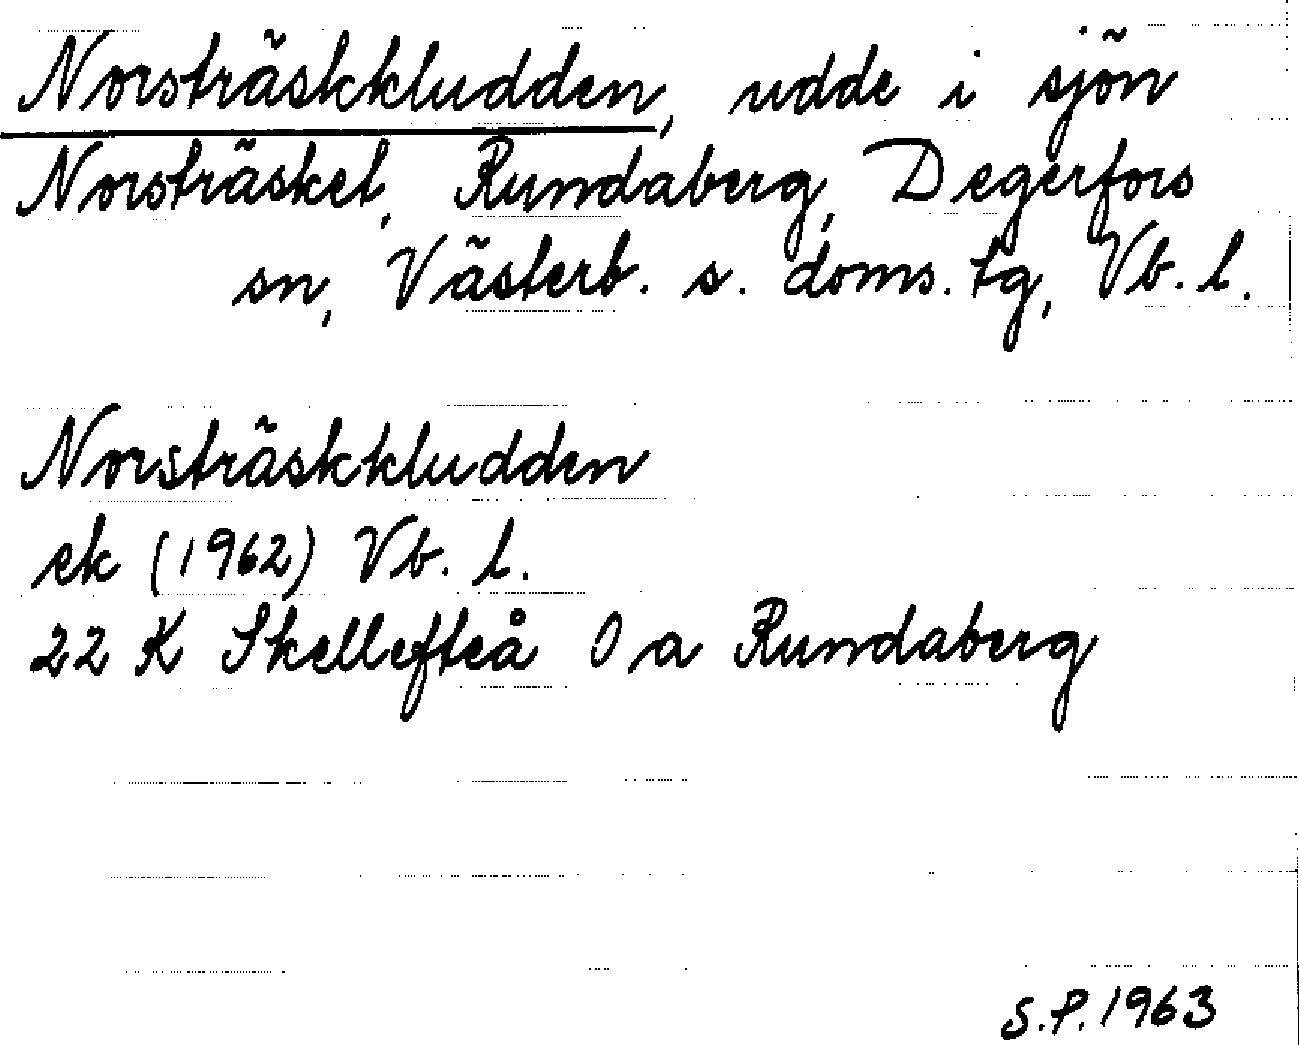 Norsträskkludden, udde i sjön
Norsträsket, Rundaberg, Degerfors
sn, Västerb. s. doms. tg, Vb. l.
Norsträskkludden
ek (1962) Vb. l.
22 K Skellefteå 0 a Rundaberg
S.P. 1963